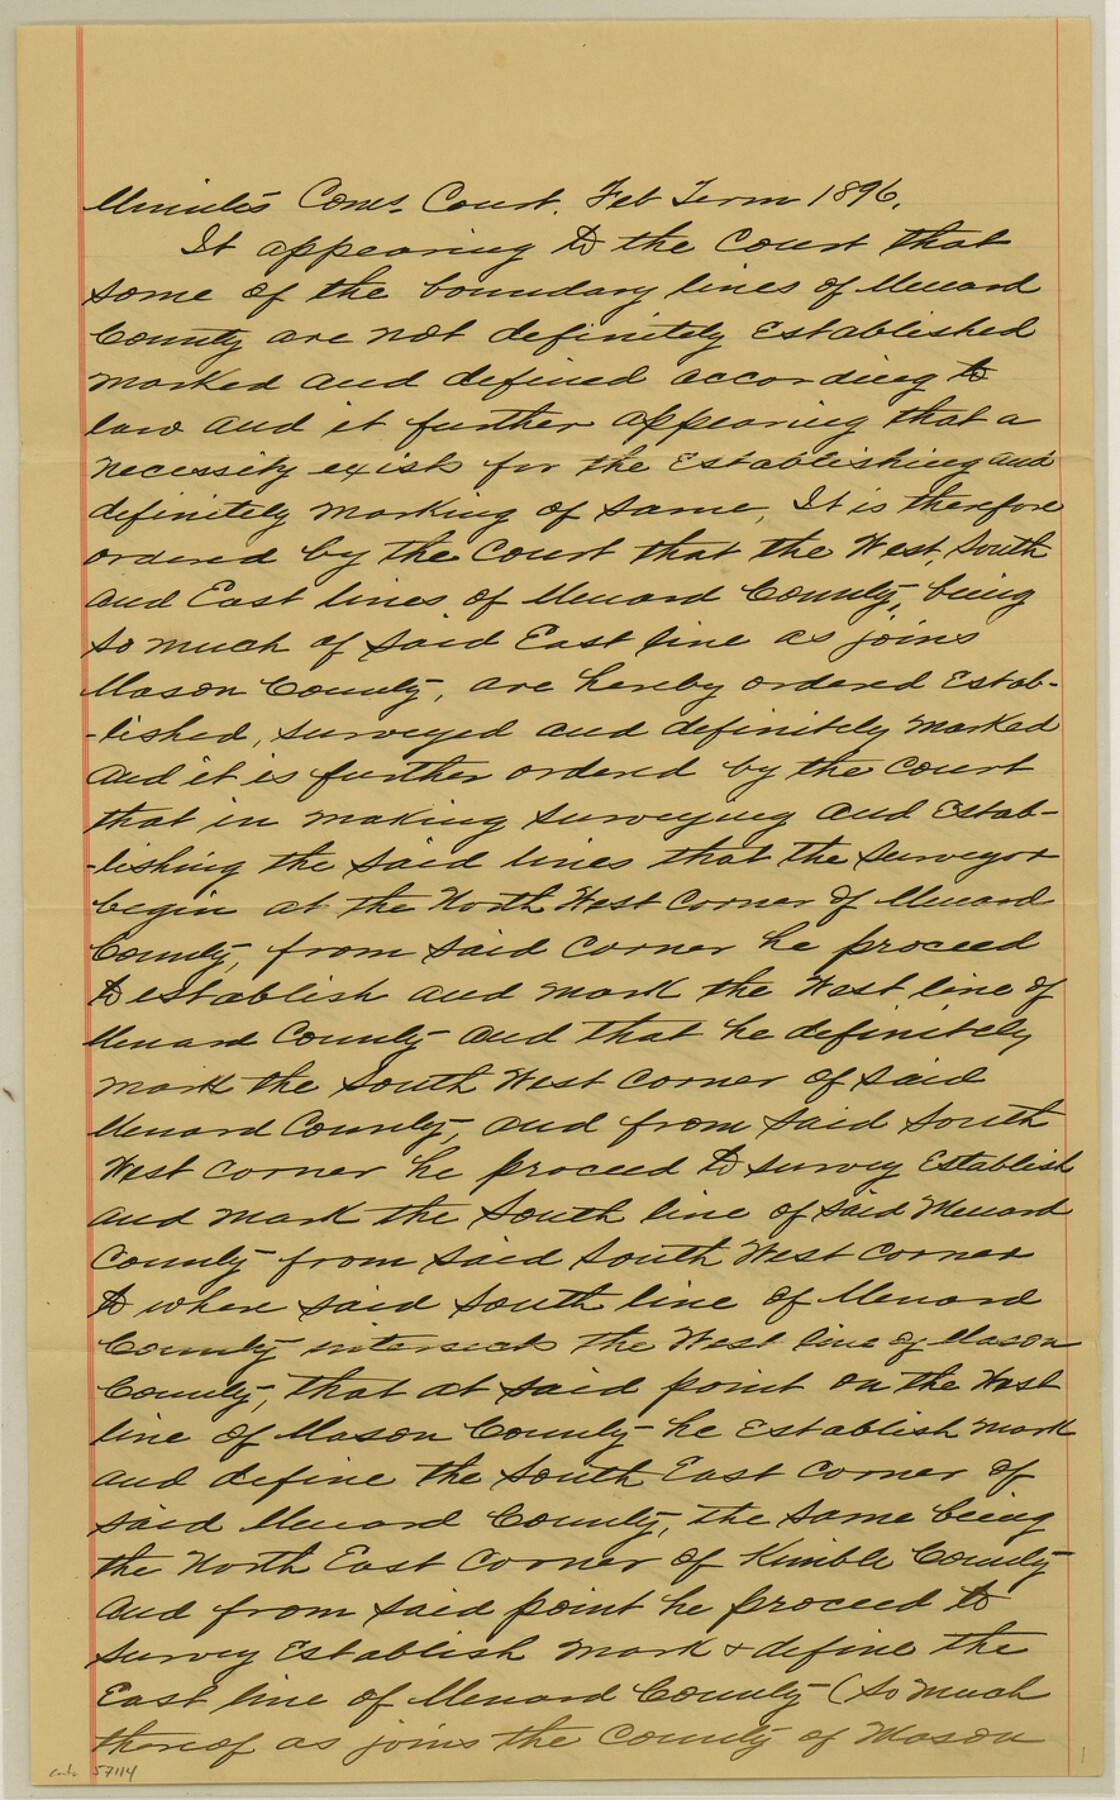 Minutes Coms. Court. Feb Term 1896.
It appearing to the Court that
some of the boundary lines of Menard
County are not definitely Established
marked and defined according to
law and it further appearing that a
necessity exists for the Establishing and
definitely marking of same, It is therefore
ordered by the Court that the West, South
and East lines of Menard County, being
so much of said East line as joins
Mason County, are hereby ordered Estab-
-lished, surveyed and definitely marked
and it is further ordered by the Court
that in making surveying and Estab-
-lishing the said lines that the surveyor
begin at the North West Corner of Menard
County, from said Corner he proceed
to establish and mark the West line of
Menard County and that he definitely
mark the South West Corner of said
Menard County, and from said South
West Corner he proceed to survey Establish
and mark the South line of said Menard
County from said South West Corner
to where said South line of Menard
County intersects the West line of Mason
County, that at said point on the West
line of Mason County he Establish mark
and define the South East Corner of
said Menard County, the same being
the North East Corner of Kimble County
and from said point he proceed to
survey Establish mark & define the
East line of Menard County (so much
thereof as joins the County of Mason
57114
1